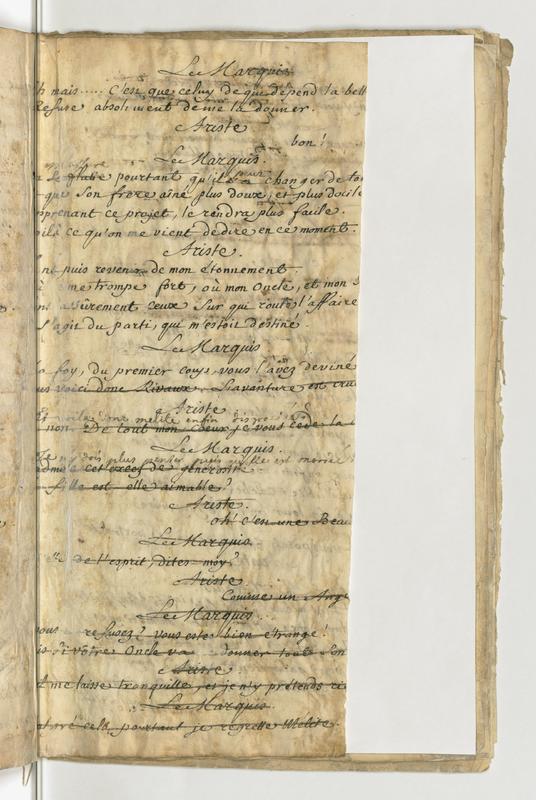 Le Marquis
mais..... C'est que celuy de qui depend la bell
Refuse absolument de me la donner.
Ariste
bon!
Le Marquis.
pourtant qu'il changer de
que son frere aîné, plus doux, et plus docile
prenant ce projet, le rendra plus facile.
ce qu'on me vient de dire en ce moment.
Ariste.
puis revenir de mon étonnement.
me trompe fort, où mon Oncle, et mon
assûrement ceux sur qui roule l'affaire
S'agit du parti, qui m'estoit destiné
Le Marquis
foy, du premier coup, vous l'avez deviné
voici donc Rivaux. L'avanture est
Ariste.
voila melite enfin
non. De tout mon coeur je vous cede la
Le Marquis.
dois plus penser puis est mariée
cet excés de générosité.
fille est-elle aimable?
Ariste.
Oh! c'est une Beau
Le Marquis
de l'esprit, dites-moy?
Ariste
Comme un Ange
Le Marquis
refusez? vous estes bien étrange!
si vôtre Oncle va donner tout son
Ariste
me laisse tranquille, et je n'y prétends
Le Marquis.
cela, pourtant je regrette Melite.